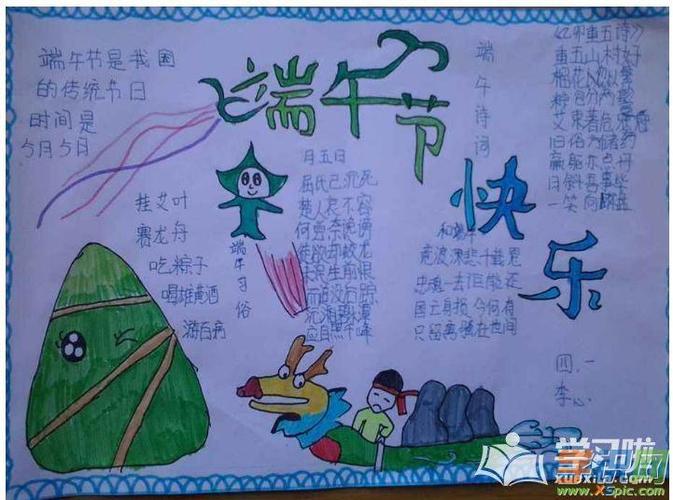 端午节是我国
的传统节日
时间是
5月5日
端午节
快乐
挂艾叶
赛龙舟
吃粽子
喝雄黄酒
游百病
端午习俗
月五日
屈氏已沉死
楚人哀不容
何尝奈谗谤
徒欲却蛟龙
未泯生前恨
而追没后踪
沅湘碧潭
应自照千峰
端午诗词
和端午
竞渡深悲千载冤
忠魂一去讵能还
国亡身殒今何有
只留离骚在世间
重五山村好
榴花忽已繁
粽包分两髻
艾束著危冠
旧俗方储药
羸躯亦点丹
日斜吾事毕
一笑向杯盘
四、一
李心
学习啦
www.xspic.com